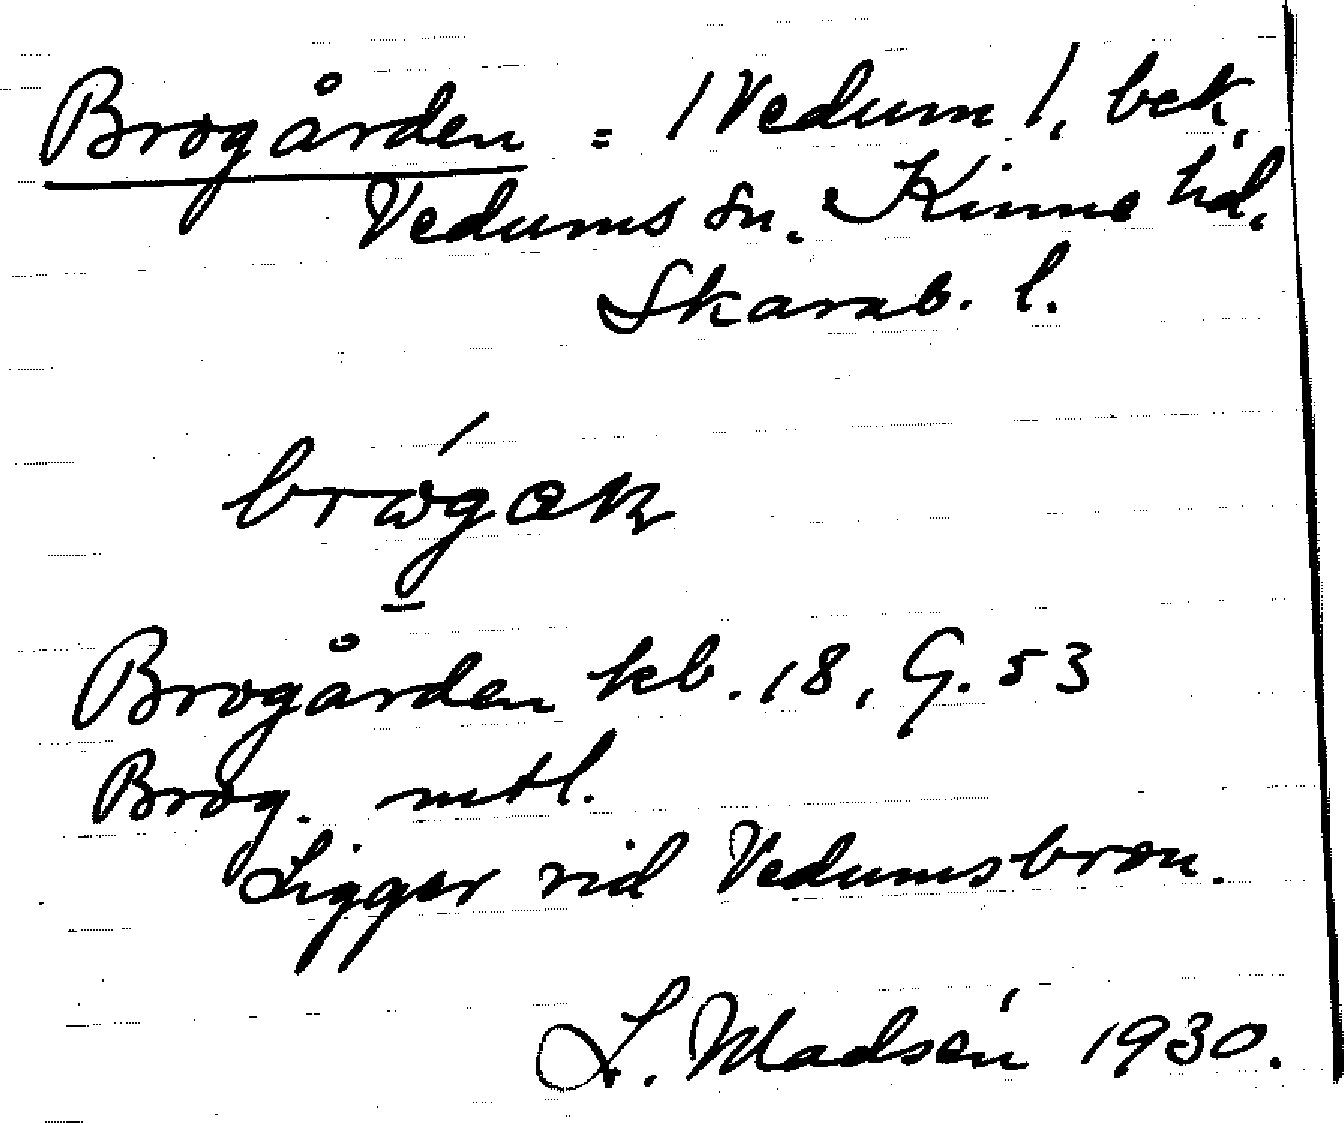 Brogården = 1 Vedum 1, bek,
Vedums sn. Kinne hd,
Skarab. l.
Brogården kb. 18, G. 53
Brog. mtl.
Ligger vid Vedumsbron.
L. Madsén 1930.